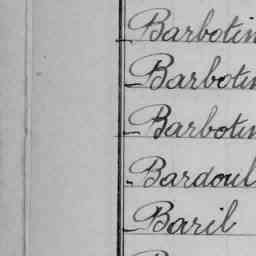 Barbotin
Barbotin
Barbotin
Bardoul
Baril